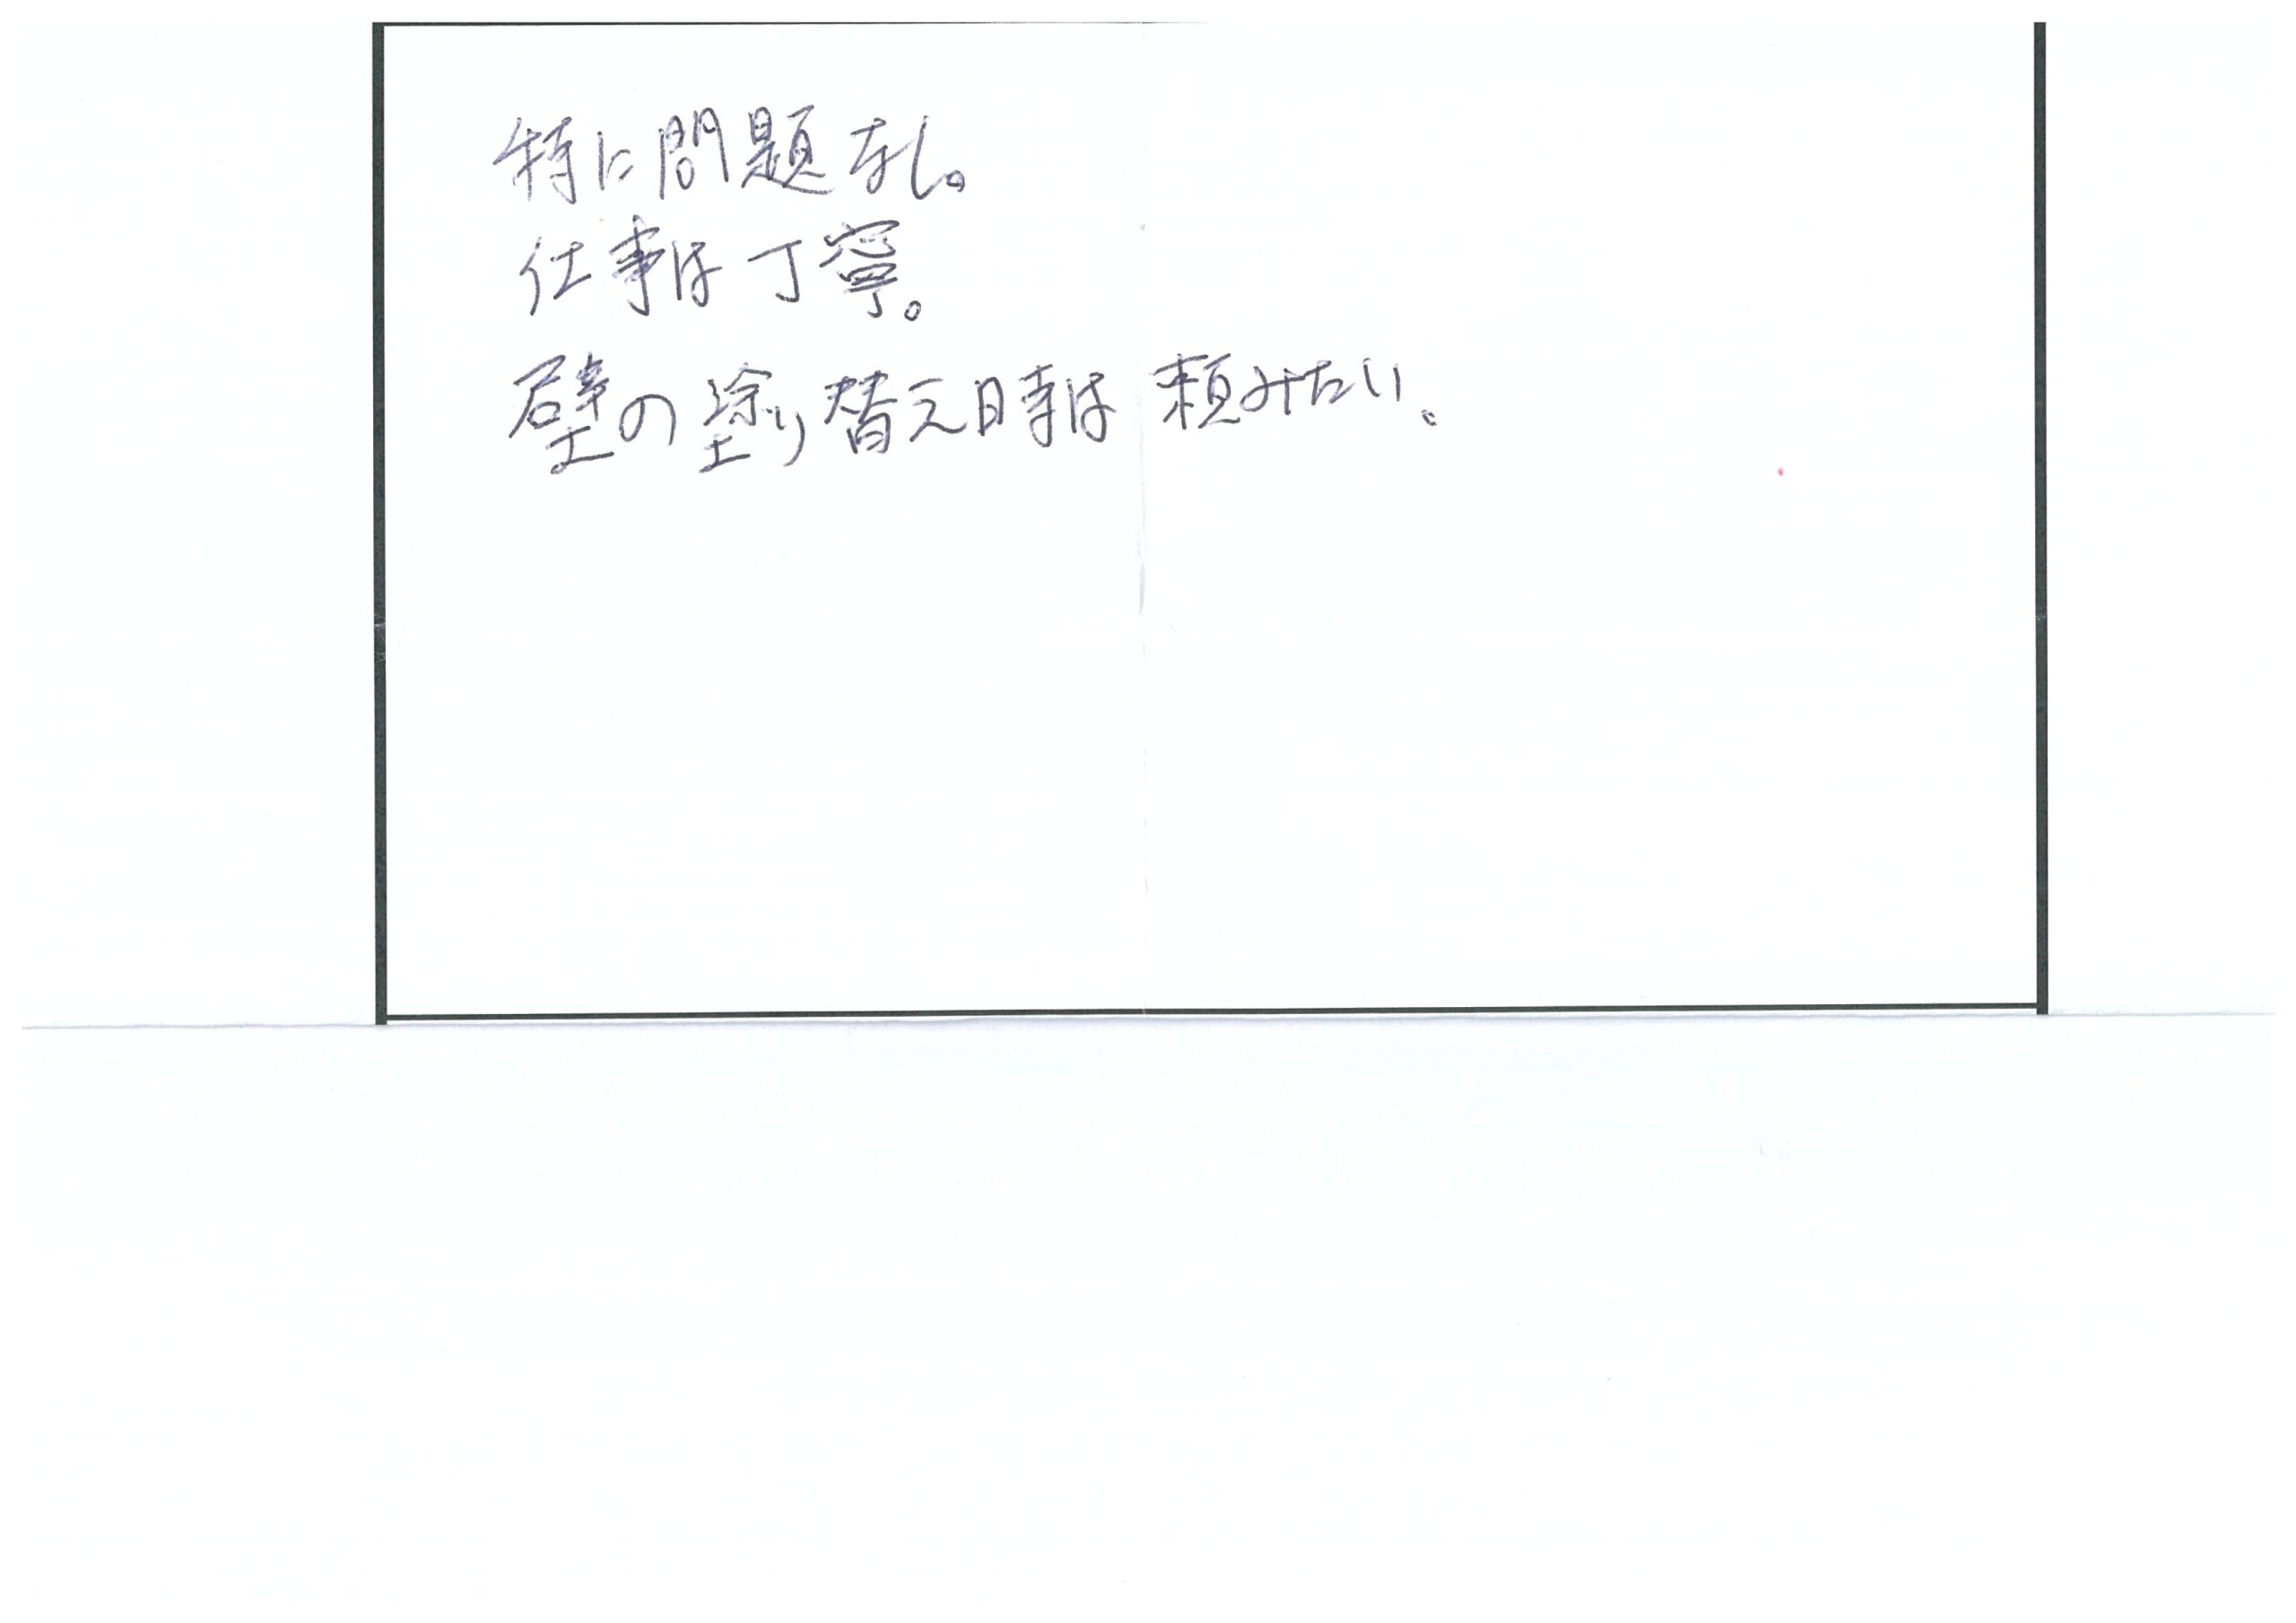 特に問題なし。
仕事は丁寧。
壁の塗り替え時は頼みたい。